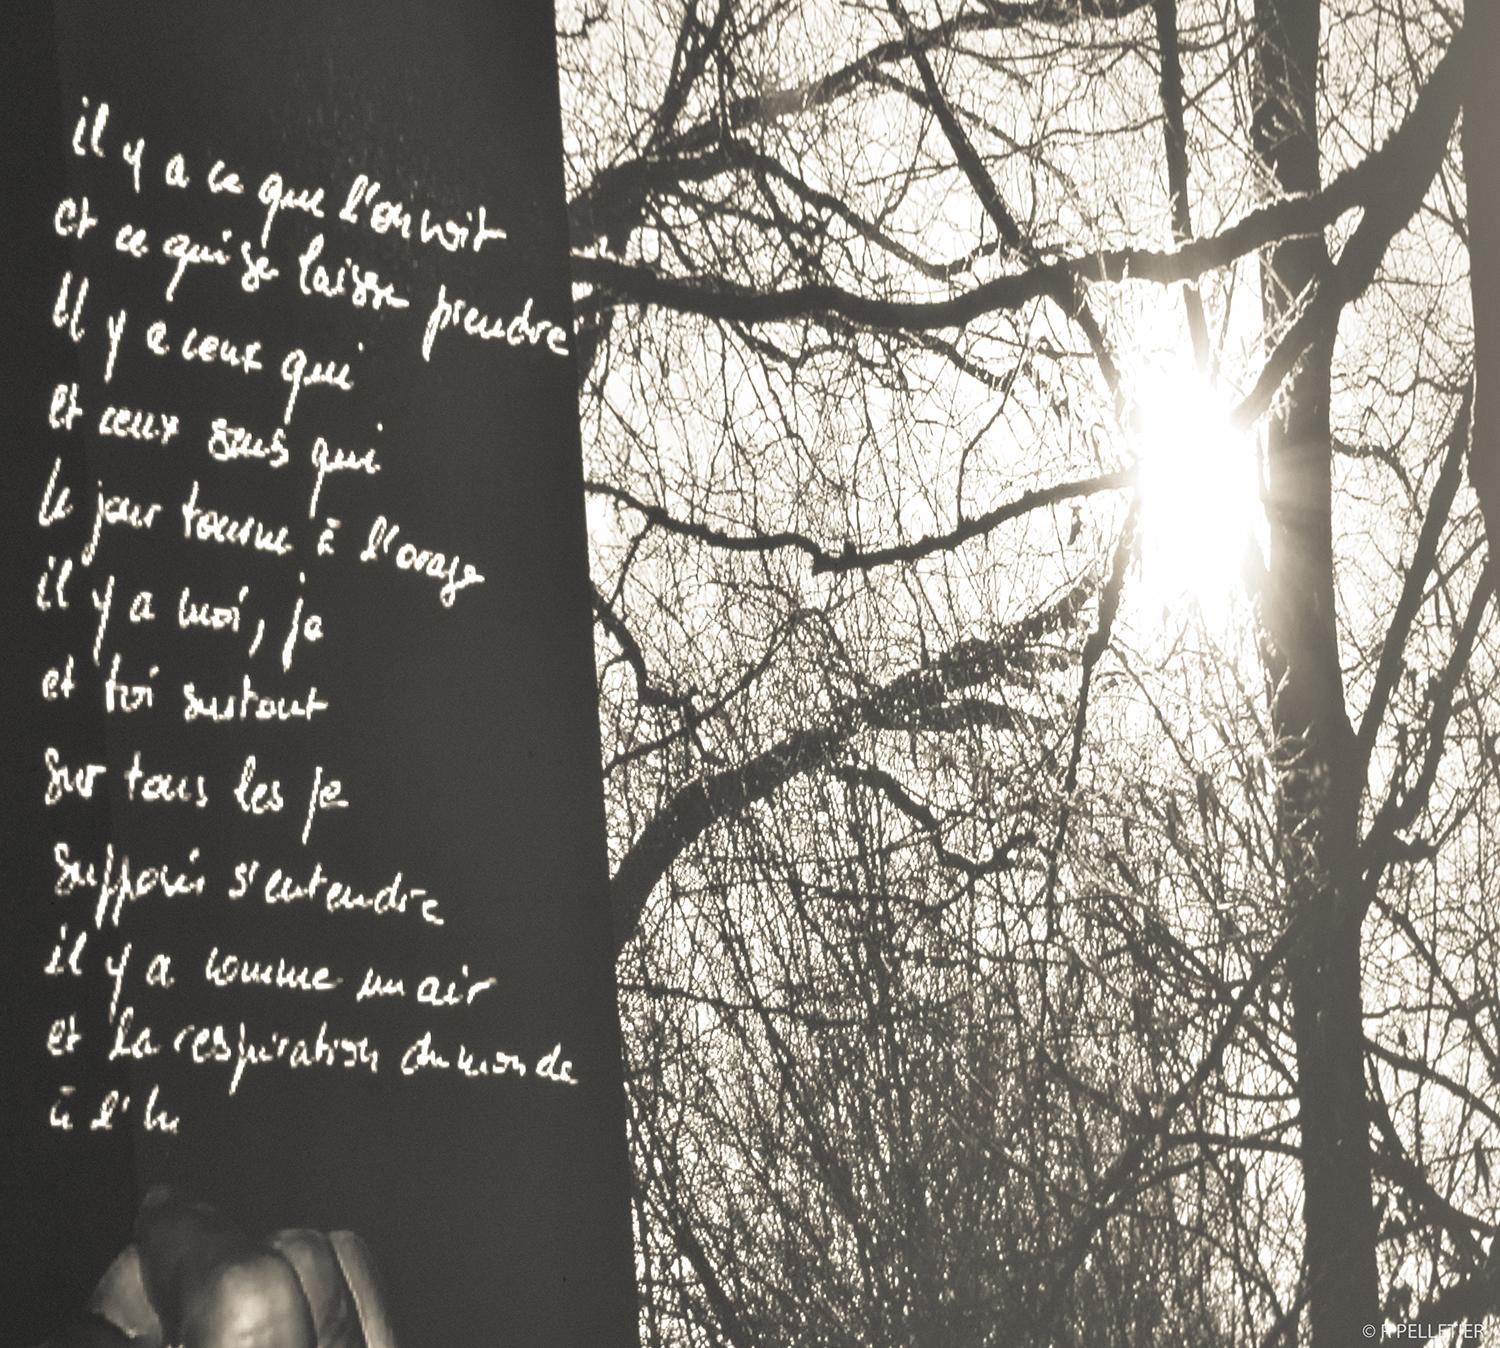 il y a ce que l'on voit
et ce qui se laisse prendre
Il y a ceux qui
et ceux sans qui
le jour tourne à l'orage
il y a moi, je
et toi surtout
sur tous les je
supposés s'entendre
il y a comme un air
et la respiration du monde
à l'hu
© R PELLETIER